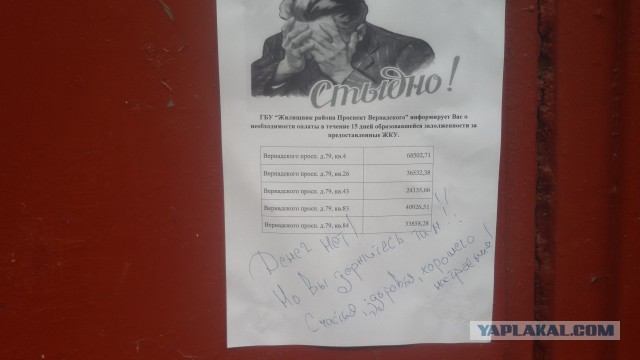 Стыдно!
ГБУ "Жилищник района Проспект Вернадского" информирует Вас о
необходимости оплаты в течение 15 дней образовавшейся задолженности за
предоставленные ЖКУ.
Вернадского просп. д.79, кв.4 68502,71
Вернадского просп. д.79, кв.26 36532,38
Вернадского просп. д.79, кв.43 24135,66
Вернадского просп. д.79, кв.83 40926,51
Вернадского просп. д.79, кв.84
Денег нет!
Но вы держитесь там!!!
Счастья, здоровья, хорошего
настроения!
YAPLAKAL.COM